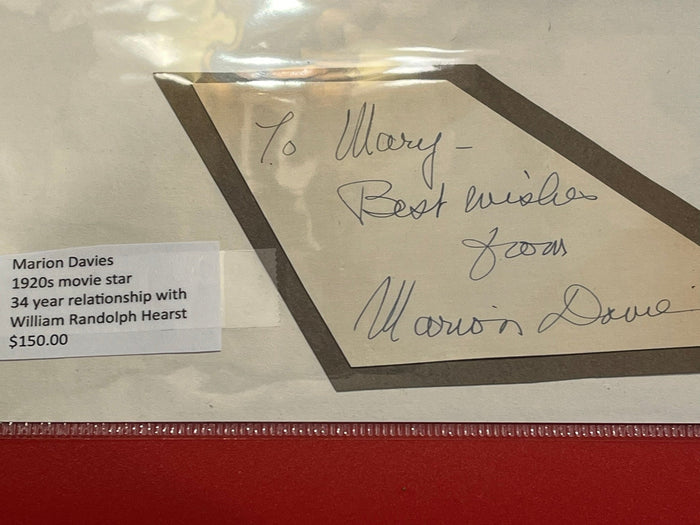 To Mary-
Best wishes
from
Marion Davie
Marion Davies
1920s movie star
34 year relationship with
William Randolph Hearst
$150.00